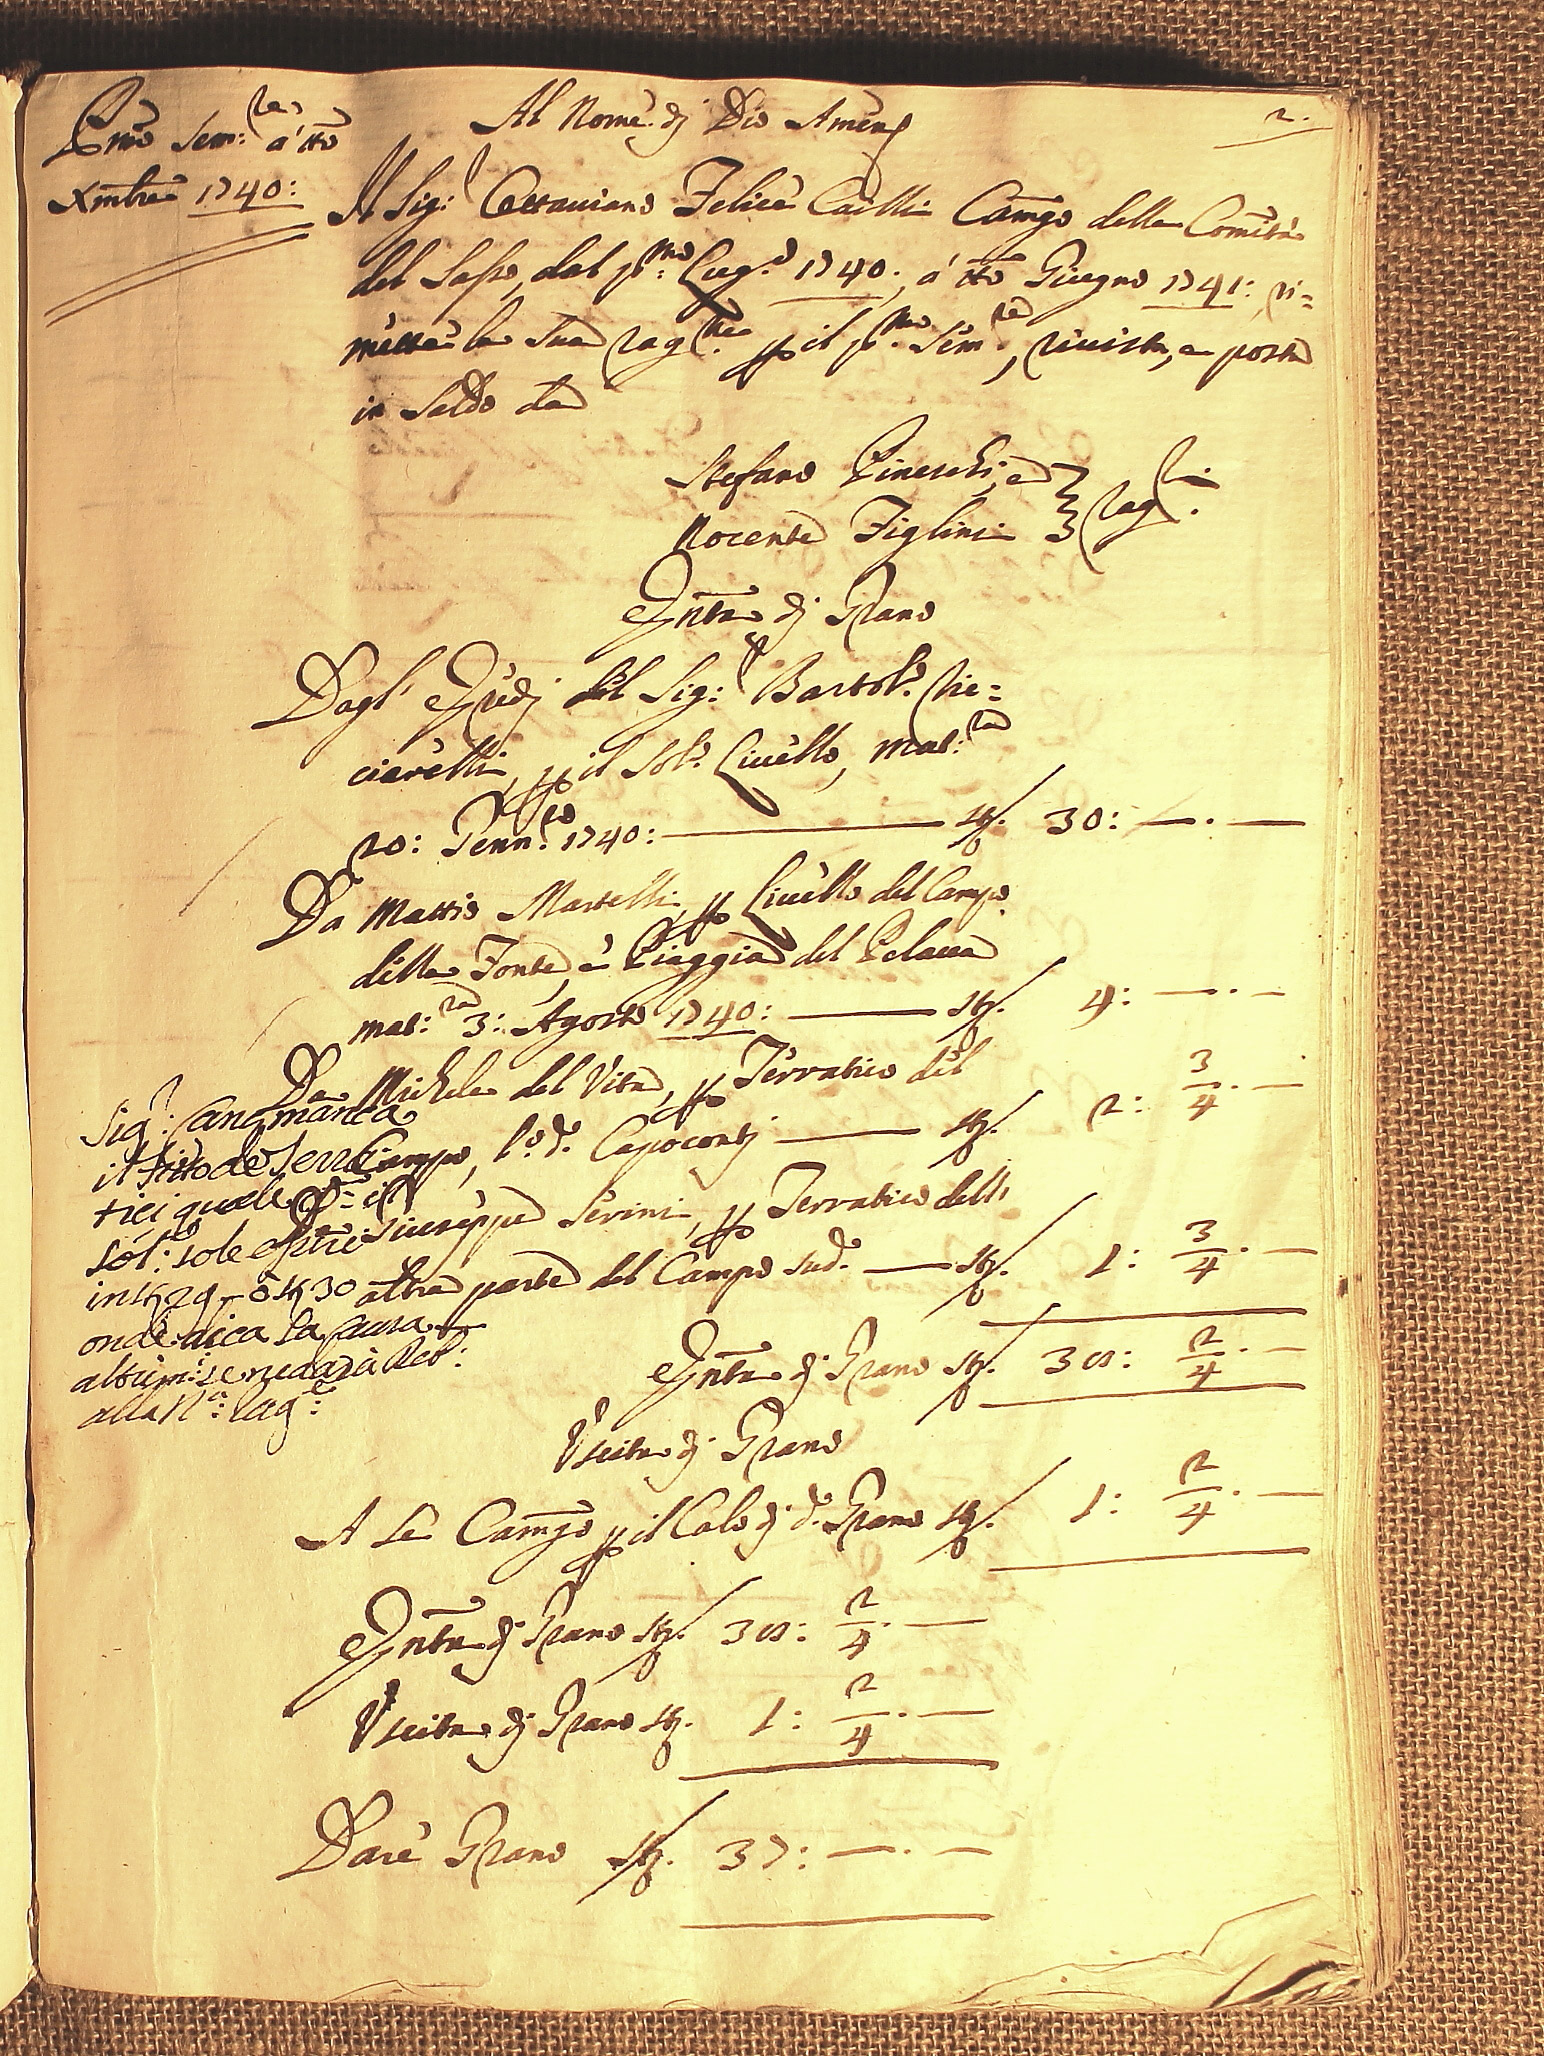 Al Nome di Dio Amen
2.
Pmo Sem:re a tto
Xmbre 1740:
Il Sig:r Ottaviano Felice Cailli Camgo della Comità
del Sasso, dal pmo: Lug.o 1740:, a tto Giugno 1741:, ri=
mette la sua rag:ne p il p:mo Sem:re, rivista, e posta
in Saldo da
Stefano Pineschi, e
Nocente Figlini rag:ri
Entra di Grano
Dagl' Eredi del Sig:r Bartol:o Ric=
ciarelli, p il sol:o Livello, mat:ta
20: Genn:ro 1740: St. 30: — . —
Da Mattio Martelli, p Livello del Campo
della Fonte, e Piaggia del Pelacca
mat:ta 3: Agosto 1740: St. 4: — . —
Da Michele del Vita, p Terratico del
Campo, l.o d.o Capoconti St. 2: 3/4 . —
Giuseppe Serini, p Terratico dell'
altra parte del Campo sud.o St. 1: 3/4 . —
Sig.r: Cang manca
il fitto de Terra
tici quale p il
sol:o sole essere
in St 29 - o St 30
onde dica la causa
altrim:i se ne darà Deb:
alla N:a rag:e
Entra di Grano St. 38: 2/4 . —
Uscita di Grano
A Se Camgo p il Calo di d.o Grano St. 1: 2/4 . —
Entra di Grano St. 38: 2/4 . —
Uscita di Grano St. 1: 2/4 . —
Dare Grano St. 37: — . —